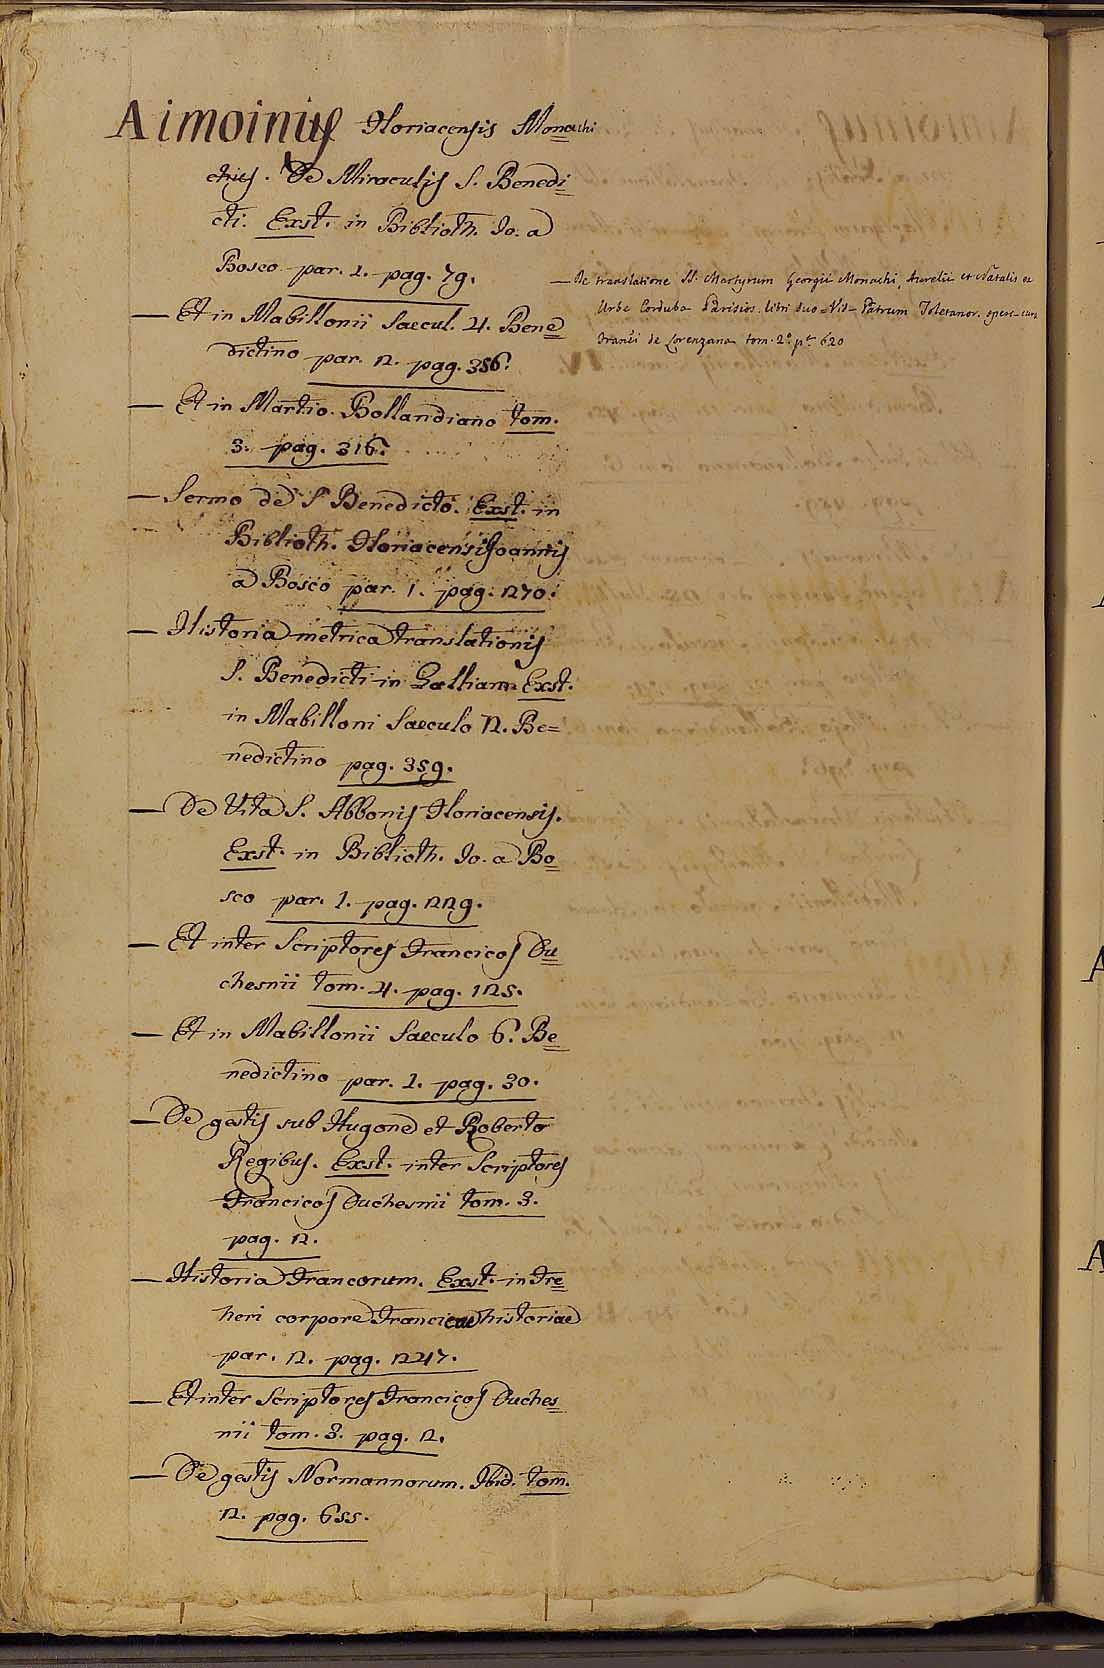 Aimoinus Floriacensis Monachi
chus. De Miraculis S. Benedi=
cti. Exst. in Biblioth. Jo. a
Bosco par. 1. pag. 79.
— Et in Mabillonii Saecul. 4. Bene=
dictino par. 2. pag. 356.
— Et in Martio Bollandiano tom.
3. pag. 316.
— Sermo de S. Benedicto. Exst. in
Biblioth. Floriacensi Joannis
a Bosco par. 1. pag. 270.
— Historia metrica translationis
S. Benedicti in Galliam Exst.
in Mabilloni Saeculo 2. Be=
nedictino pag. 359.
— De Vita S. Abbonis Floriacensis.
Exst. in Biblioth. Jo. a Bo=
sco par. 1. pag. 229.
— Et inter Scriptores Francicos Du=
chesnii tom. 4. pag. 125.
— Et in Mabillonii Saeculo 6. Be=
nedictino par. 1. pag. 30.
— De gestis sub Hugone et Roberto
Regibus. Exst. inter Scriptores
Francicos Duchesnii tom. 3.
pag. 2.
— Historia Francorum. Exst. in Fre=
heri corpore Francicae historiae
par. 2. pag. 247.
— Et inter Scriptores Francicos Duches=
nii tom. 3. pag. 2.
— De gestis Normannorum. Ibid. tom.
2. pag. 655.
— De translatione SS. Martyrum Georgii Monachi, Aurelii et Natalis ex
Urbe Corduba Parisios. libri duo Patrum Toletanor. oper. cur
Franci de Lorenzana tom. 2º. pª. 620